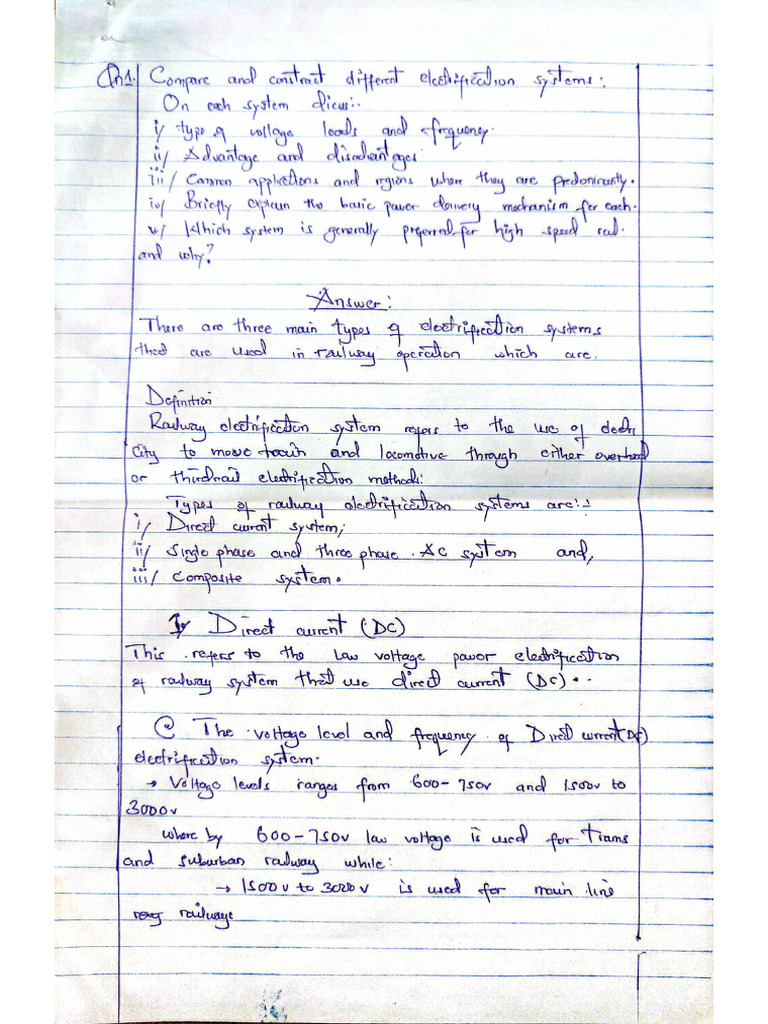 Qn1. Compare and constract different electrification systems:
On each system dicus:.
i/ type of voltage leads and frequency.
ii/ Advantage and disadvantages:
iii/ Common applications and regions where they are predominantly.
iv/ Briefly explain the basic power delivery mechanism for each.
v/ Which system is generally preferred for high speed rail.
and why?
Answer:
There are three main types of electrification systems
that are used in railway operation which are.
Definition
Railway electrification system refers to the use of electri
city to move train and locomotive through either overhead
or thirdrail electrification methods:
Types of railway electrification systems are:-
i/ Direct current system;
ii/ Single phase and three phase. AC system and,
iii/ Composite system.
I/ Direct current (DC)
This refers to the law voltage power electrification
of railway system that use direct current (DC)..
The voltage level and frequency of Direct current (DC)
electrification system.
→ Voltage levels ranges from 600-750v and 1500v to
3000v
where by 600-750v law voltage is used for trams
and suburban railway while:
→ 1500v to 3000v is used for main line
railway